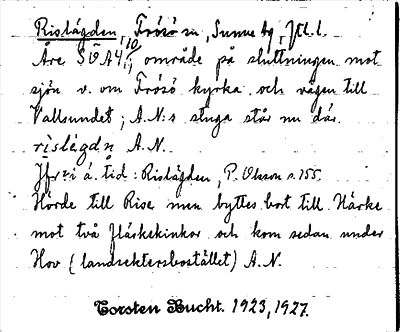 Rislägden, Frösö sn, Sunne tg, Jtl. l.
Åre SV A4 10/11 område på sluttningen mot
sjön v. om Frösö kyrka och vägen till
Vallsundet; A.N:s stuga står nu där.
rislägdn A.N.
Jfr i å. tid: Rislägden, P. Olsson s. 155.
Hörde till Rise men byttes bort till Härke
mot två fläskskinkor och kom sedan under
Hov (landsektersbostället) A.N.
Torsten Bucht. 1923, 1927.